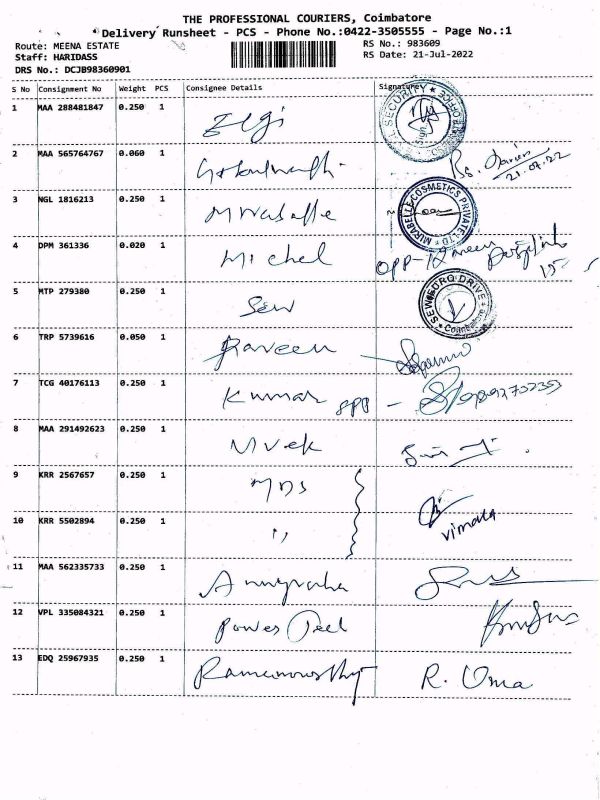 THE PROFESSIONAL COURIERS, Coimbatore
Delivery Runsheet - PCS - Phone No.:0422-3505555 - Page No.:1
Route: MEENA ESTATE
RS No.: 983609
Staff: HARIDASS
RS Date: 21-Jul-2022
DRS No.: DCJB98360901
S No Consignment No Weight PCS Consignee Details Signature
1 MAA 288481847 0.250 1 Elgi SECURITY
2 MAA 565764767 0.060 1 21.07.22
3 NGL 1816213 0.250 1 MIRABELLE COSMETICS PRIVATE LTD
4 DPM 361336 0.020 1 Michel opp-
5 MTP 279380 0.250 1 Sew SEWEURO DRIVE Coimbatore
6 TRP 5739616 0.050 1 Praveen
7 TCG 40176113 0.250 1 Kumar opp -
8 MAA 291492623 0.250 1 Vivek
9 KRR 2567657 0.250 1 MDS
10 KRR 5502894 0.250 1 ,, vimala
11 MAA 562335733 0.250 1
12 VPL 335084321 0.250 1 Power
13 EDQ 25967935 0.250 1 Ramamoorthy R. Uma